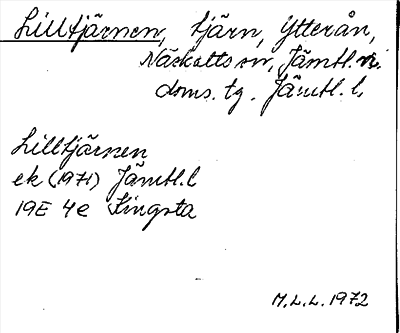 Lilltjärnen, tjärn, Ytterån,
Näskotts sn, Jämtl. n.
doms. tg. Jämtl. l.
Lilltjärnen
ek (1971) Jämtl. l
19E 4e Singsta
M.L.L. 1972